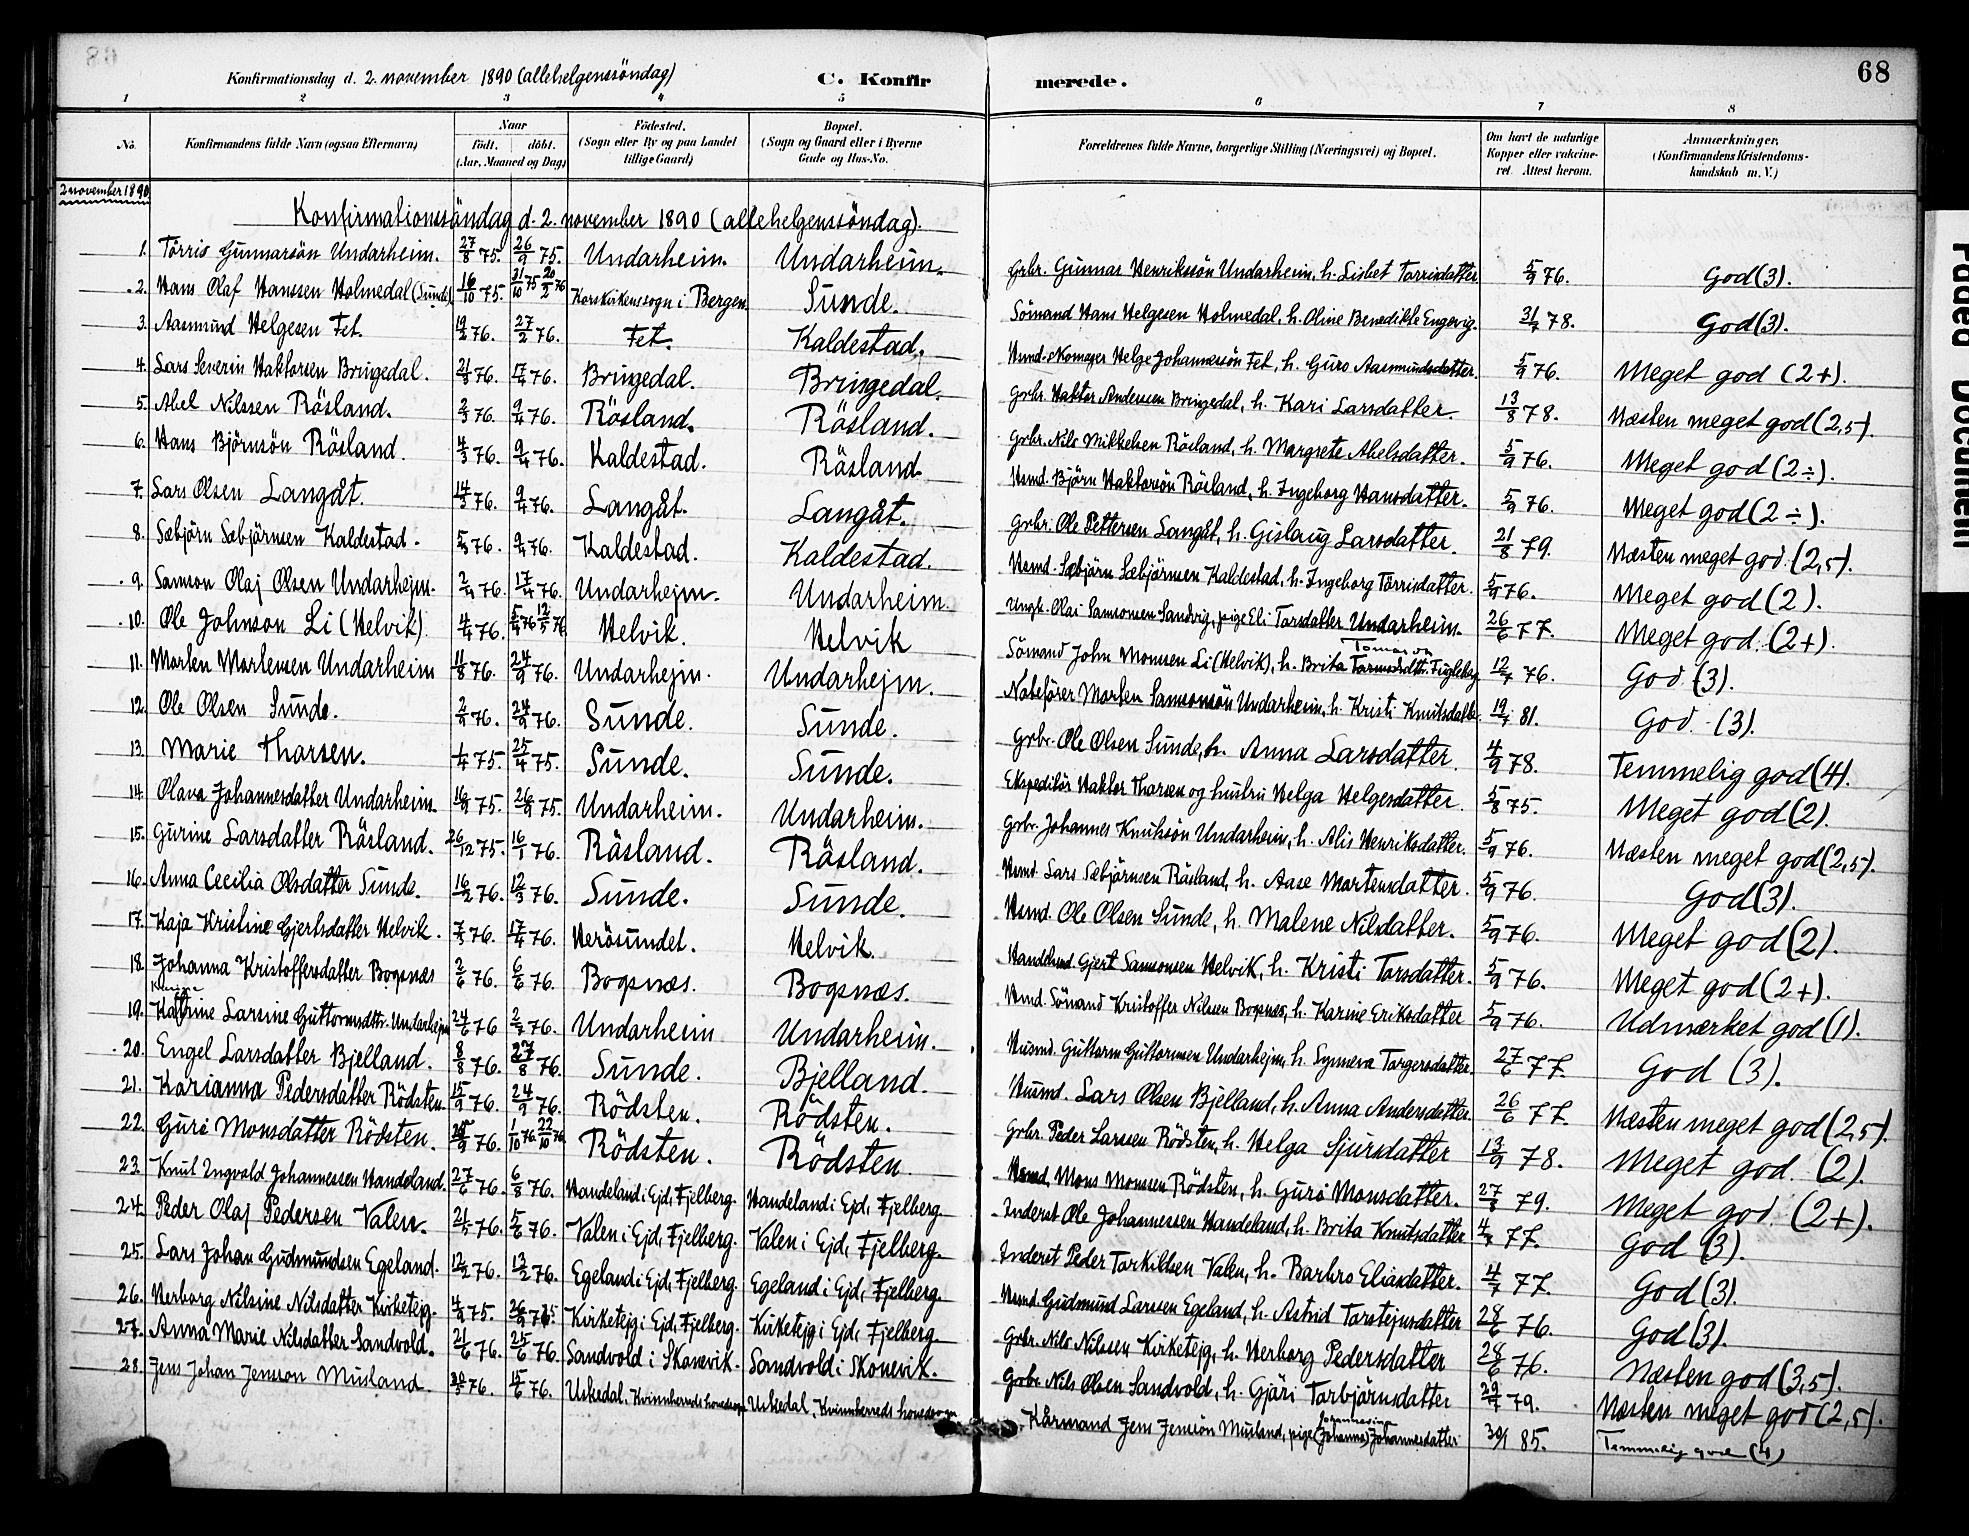 68
Konfirmationsdag d. 2. november 1890 (allehelgenssöndag) C. Konfirmerede.
1 2 3 4 5 6 7 8
No. Konfirmandens fulde Navn (ogsaa Efternavn) Naar födt. döbt. (Aar, Maaned og Dag) Födested. (Sogn eller By og paa Landet tillige Gaard) Bopæl. (Sogn og Gaard eller i Byerne Gade og Hus-No. Forældrenes fulde Navne, borgerlige Stilling (Næringsvei) og Bopæl. Om havt de naturlige Kopper eller vakcineret. Attest herom. Anmærkninger. (Konfirmandens Kristendomskundskab m. V.)
2 november 1890
Konfirmationssöndag d. 2. november 1890 (allehelgenssöndag).
1. Törris Gunnarsön Undarheim. 27/8 75. 26/9 75. Undarheim. Undarheim. Grbr. Gunnar Henrikssön Undarheim, h. Lisbet Torrisdatter 5/9 76. God (3).
2. Hans Olaf Hanssen Holmedal (Sunde) 16/10 75. 31/10 75 20/2 76 Korskirkens sogn i Bergen. Sunde. Sömand Hans Helgesen Holmedal, h. Oline Benedikte Engevig. 31/7 78. God (3).
3. Aasmund Helgesen Fet. 19/2 76. 27/2 76. Fet. Kaldestad. Husmd. Helge Johannessön Fet, h. Guro Aasmundsdatter. 5/9 76. Meget god (2+).
4. Lars Severin Haktorsen Bringedal. 21/3 76. 17/4 76. Bringedal. Bringedal. Grbr. Haktor Andersen Bringedal, h. Kari Larsdatter. 13/8 78. Næsten meget god (2,5).
5. Abel Nilssen Rösland. 2/3 76. 9/4 76. Rösland. Rösland. Grbr. Nils Mikkelsen Rösland, h. Margrete Abelsdatter. 5/9 76. Meget god (2÷).
6. Hans Björnsön Rösland. 4/3 76. 9/4 76. Kaldestad. Rösland. Husmd. Björn Haktorsön Rösland, h. Ingeborg Hansdatter. 5/9 76. Meget god (2÷).
7. Lars Olsen Langåt. 14/3 76. 9/4 76. Langåt. Langåt. Grbr. Ole Pettersen Langåt, h. Gislaug Larsdatter. 21/8 79. Næsten meget god. (2,5).
8. Sæbjörn Sæbjörnsen Kaldestad. 5/3 76. 9/4 76. Kaldestad. Kaldestad. Husmd. Sæbjörn Sæbjörnsen Kaldestad, h. Ingeborg Törrisdatter. 5/9 76. Meget god (2).
9. Samson Olaj Olsen Undarhejm. 2/4 76. 17/4 76. Undarhejm. Undarheim. Ungk. Olai Samsonsen Sandvig, pige Eli Torsdatter Undarheim. 26/6 77. Meget god. (2+).
10. Ole Johnson Li (Helvik). 4/4 76. 5/4 76 12/5 76 Helvik. Helvik Sömand John Monsen Li (Helvik), h. Brita Fugleberg 12/7 76. God (3).
11. Morten Mortensen Undarheim 11/8 76. 24/9 76. Undarhejm. Undarhejm. Morten Samsonsön Undarheim, h. Kristi Knutsdatter 19/7 81. God. (3).
12. Ole Olsen Sunde. 2/9 76. 24/9 76. Sunde. Sunde. Grbr. Ole Olsen Sunde, h. Anna Larsdatter. 4/9 78. Temmelig god (4).
13. Marie Tharsen. 1/4 75. 25/4 75. Sunde. Sunde. Ekspeditör Haktor Tharsen og hustru Helga Helgesdatter. 5/8 75. Meget god (2).
14. Olava Johannesdatter Undarheim. 16/9 75. 26/9 75. Undarheim. Undarheim. Grbr. Johannes Knutsön Undarheim, h. Alis Henriksdatter. 5/9 76. Næsten meget god (2,5).
15. Gurine Larsdatter Rösland. 26/12 75. 16/1 76. Rösland. Rösland. Husmd. Lars Sæbjörnsen Rösland, h. Aase Mortensdatter. 5/9 76. God (3).
16. Anna Cecilia Olsdatter Sunde. 16/2 76. 12/3 76. Sunde. Sunde. Husmd. Ole Olsen Sunde, h. Malene Nilsdatter. 5/9 76. Meget god (2).
17. Kaja Kristine Gjertsdatter Helvik. 7/3 76. 17/4 76. Herösundet. Helvik. Gjert Samsonsen Helvik, h. Kristi Torsdatter. 5/9 76. Meget god (2+).
18. Johanna Kristoffersdatter Bogsnæs 2/6 76. 6/6 76. Bogsnæs. Bogsnæs. Husmd. Sömand Kristoffer Nilssen Bogsnæs, h. Karine Eriksdatter 5/9 76. Udmærket god (1).
19. Katrine Larsine Guttormsdtr. Undarhejm 24/6 76 2/7 76. Undarheim Undarheim. Husmd. Guttorm Guttormsen Undarhejm, h. Synneva Torgersdatter. 27/6 77. God (3).
20. Engel Larsdatter Bjelland. 8/8 76. 27/8 76. Sunde. Bjelland. Husmd. Lars Olsen Bjelland, h. Anna Andersdatter. 26/6 77. Næsten meget god (2,5).
21. Karianna Pedersdatter Rödsten. 15/9 76. 24/9 76. Rödsten. Rödsten. Grbr. Peder Larssen Rödsten, h. Helga Sjursdatter 13/9 78. Meget god. (2).
22. Guro Monsdatter Rödsten. 76. 1/10 76. 22/10 76. Rödsten. Rödsten. Husmd. Mons Monssen Rödsten, h. Guro Monsdatter. 27/8 79. Meget god. (2+).
23. Knut Ingvald Johannessen Handeland. 27/6 76. 6/8 76. Handeland i Ejd, Fjelberg. Handeland i Ejd, Fjelberg. Inderst Ole Johannessen Handeland, h. Brita Knutsdatter 4/7 77. God (3).
24. Peder Olaj Pedersen Valen. 21/5 76. 5/6 76. Valen i Ejd, Fjelberg. Valen i Ejd, Fjelberg. Inderst Peder Torkildsen Valen, h. Barbro Eliasdatter. 4/7 77. God (3).
25. Lars Johan Gudmundsen Egeland. 12/2 76. 13/2 76. Egeland i Ejd, Fjelberg. Egeland i Ejd, Fjelberg. Husmd. Gudmund Larssen Egeland, h. Astrid Torstejnsdatter 28/6 76. God (3).
26. Herborg Nilsine Nilsdatter Kirketejg. 4/9 75. 26/9 75. Kirketejg i Ejd, Fjelberg. Kirketejg i Ejd, Fjelberg. Grbr. Nils Nilssen Kirketejg, h. Herborg Pedersdatter 28/6 76. Næsten god (3,5).
27. Anna Marie Nilsdatter Sandvold. 21/6 76. 25/6 76. Sandvold i Skonevik. Sandvold i Skonevik. Grbr. Nils Olsen Sandvold, h. Gjöri Torbjörnsdatter 29/7 79. Næsten meget god (2,5).
28. Jens Johan Jensson Musland. 76. 15/6 76. Uskedal, Kvinnherreds hovedsogn Uskedal, Kvinnherreds hovedsogn Jens Jensson Musland, pige (Johanna) Johannesdatter 85. Temmelig god (4)